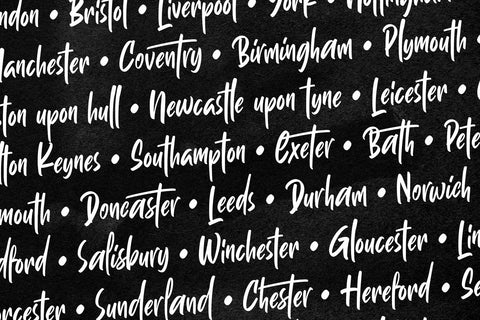 ndon • Bristol • Liverpool • York • Nottingham
anchester • Coventry • Birmingham • Plymouth •
ton upon hull • Newcastle upon tyne • Leicester •
lton Keynes • Southampton • Exeter • Bath • Pete
mouth • Doncaster • Leeds • Durham • Norwich
dford • Salisbury • Winchester • Gloucester • Lin
orcester • Sunderland • Chester • Hereford • Se